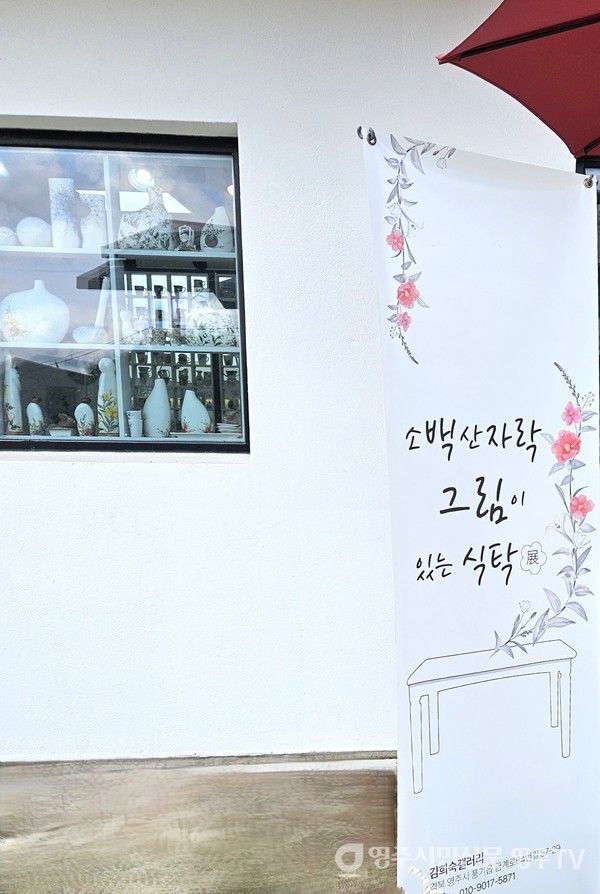 소백산자락
그림이
있는 식탁 展
김희숙갤러리
경북 영주시 풍기읍 금계로64번길 57-29
010-9017-5871
영주시민신문 영주TV